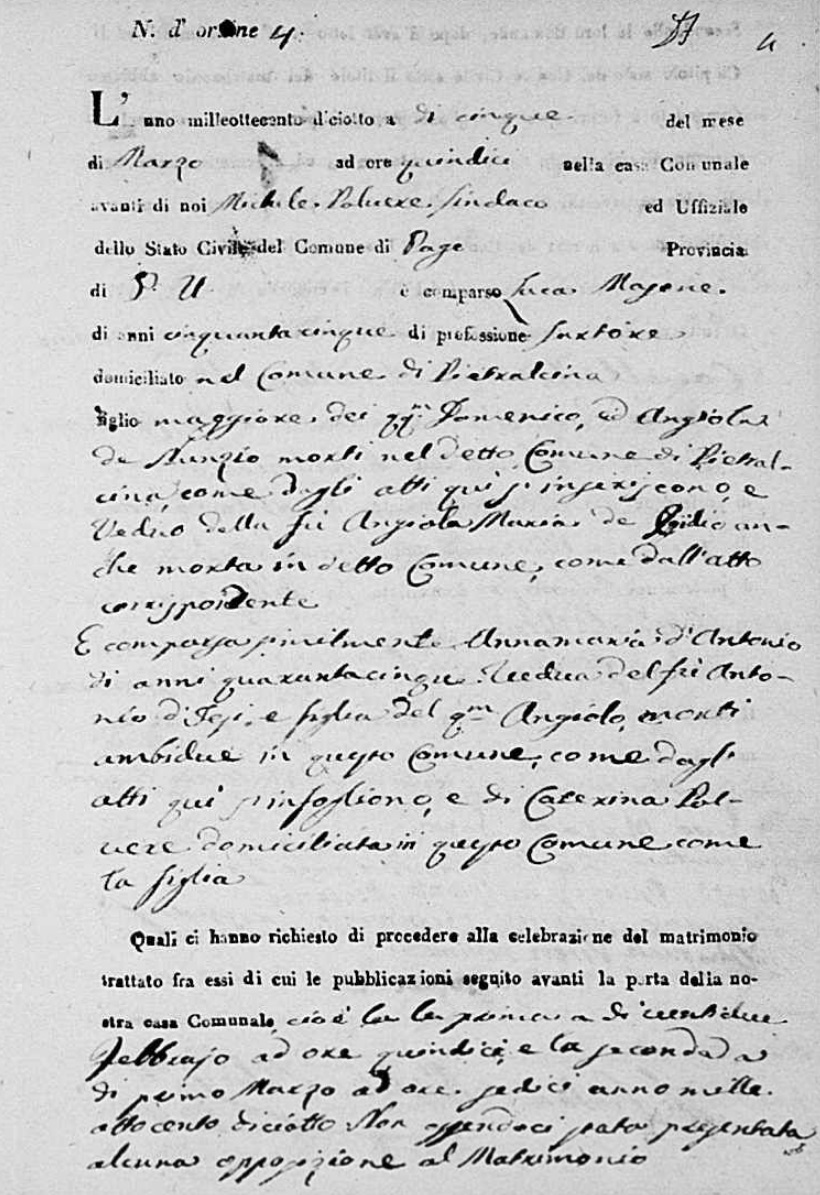 N. d' ordine 4.
4
L' anno milleottecento diciotto a di cinque del mese
di Marzo ad ore quindici nella casa Comunale
avanti di noi Michele Polvere Sindaco ed Uffiziale
dello Stato Civile del Comune di Page Provincia
di P. U è comparso Luca Masone
di anni cinquantacinque di professione Sartore
domiciliato nel Comune di Pietralcina
figlio maggiore dei qq.m Domenico, ed Angiola
de Nunzio morti nel detto Comune di Pietral-
cina, come dagli atti qui s'inseriscono, e
Veduo della fu Angiola Maria de Egidio an-
che morta in detto Comune, come dall'atto
corrispondente
E comparsa similmente Annamaria d'Antonio
di anni quarantacinque Vedua del fu Anto-
nio d'Isi, e figlia del q.m Angiolo, morti
ambidue in questo Comune, come dagli
atti qui s'infogliono, e di Caterina Pol-
vere domiciliata in questo Comune come
la figlia
Quali ci hanno richiesto di procedere alla celebrazione del matrimonio
trattato fra essi di cui le pubblicazioni seguito avanti la porta della no-
stra casa Comunale, cioè la la prima a di ventidue
Febbrajo ad ore quindici, e la seconda a
di primo Marzo ad ore sedici anno mille
ottocento diciotto Non essendoci stata presentata
alcuna opposizione al Matrimonio